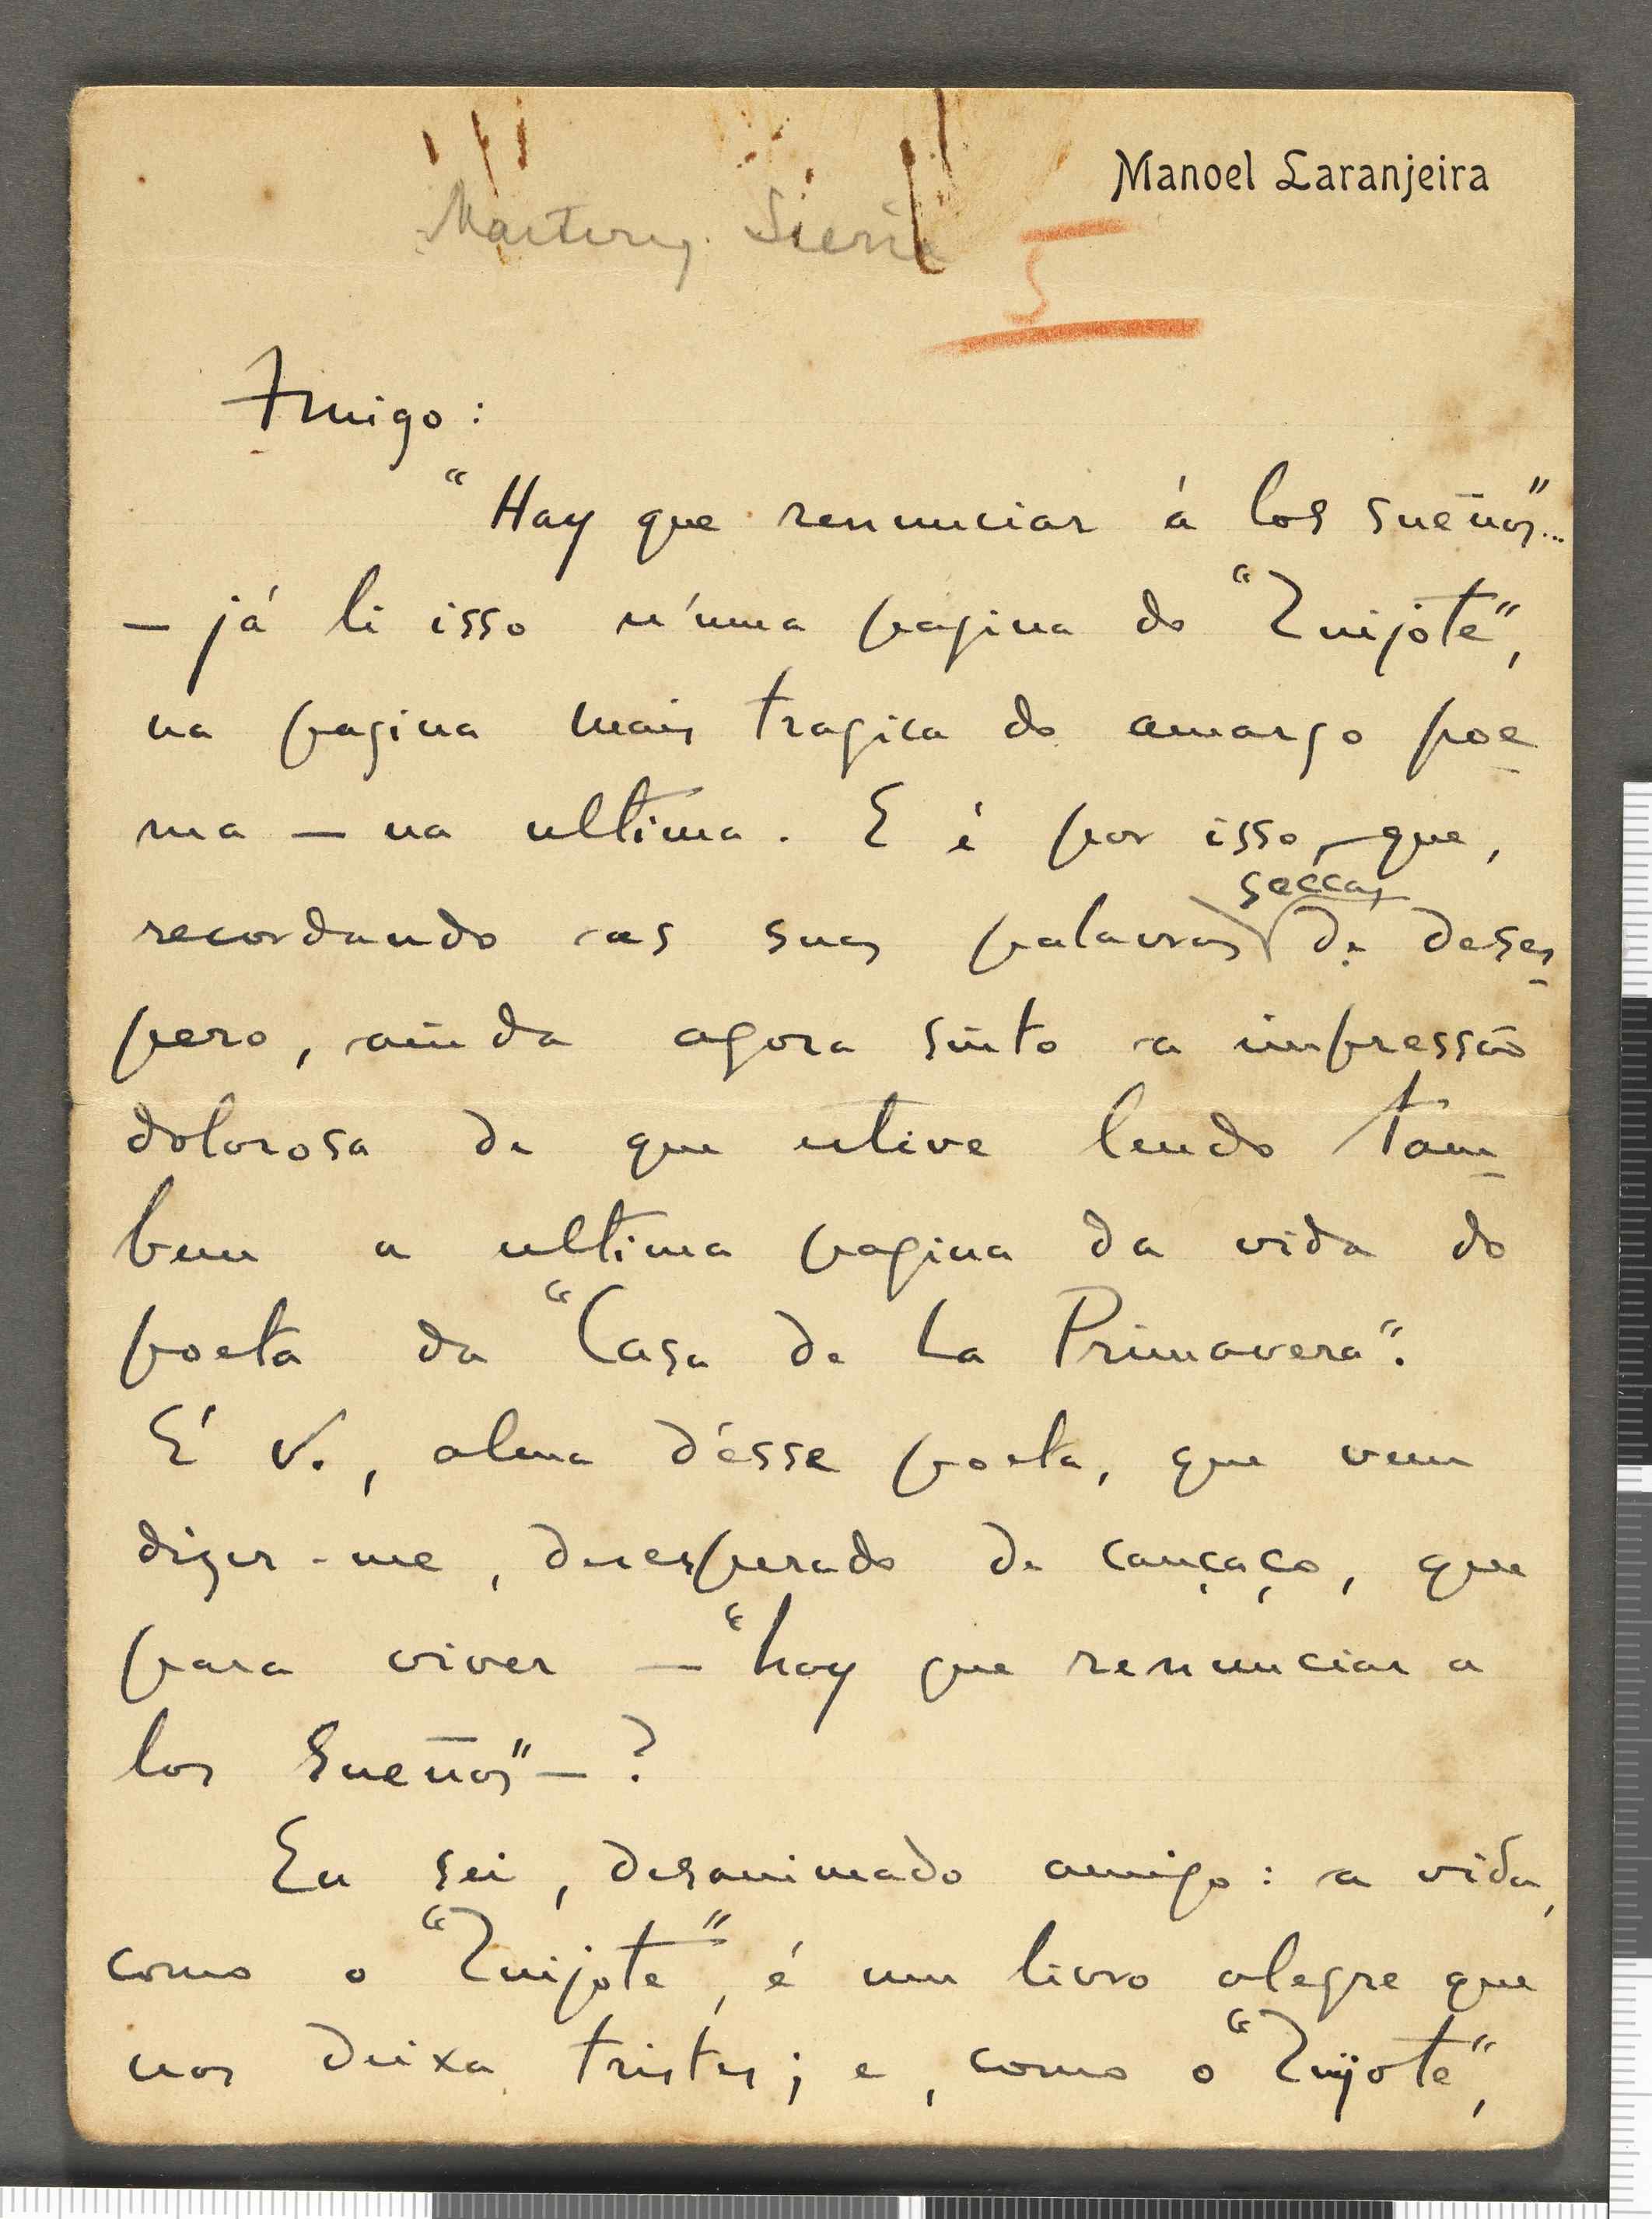 Manoel Laranjeira
Martinez Sierra
5
Amigo:
"Hay que renunciar á los sueños"...
— já li isso n'uma pagina do "Quijóte",
na pagina mais tragica do amargo poe-
ma — na ultima. E é por isso que,
seccas
recordando as suas palavras de deses-
pero, ainda agora sinto a impressão
dolorosa de que estive lendo tam-
bem a ultima pagina da vida do
poeta da "Casa de La Primavera".
É V., alma d'ésse poeta, que vem
dizer-me, desesperado de cançaço, que
para viver — "hay que renunciar a
los sueños" — ?
Eu sei, desanimado amigo: a vida,
como o "Quijote", é um livro alegre que
nos deixa tristes; e, como o "Quijote",